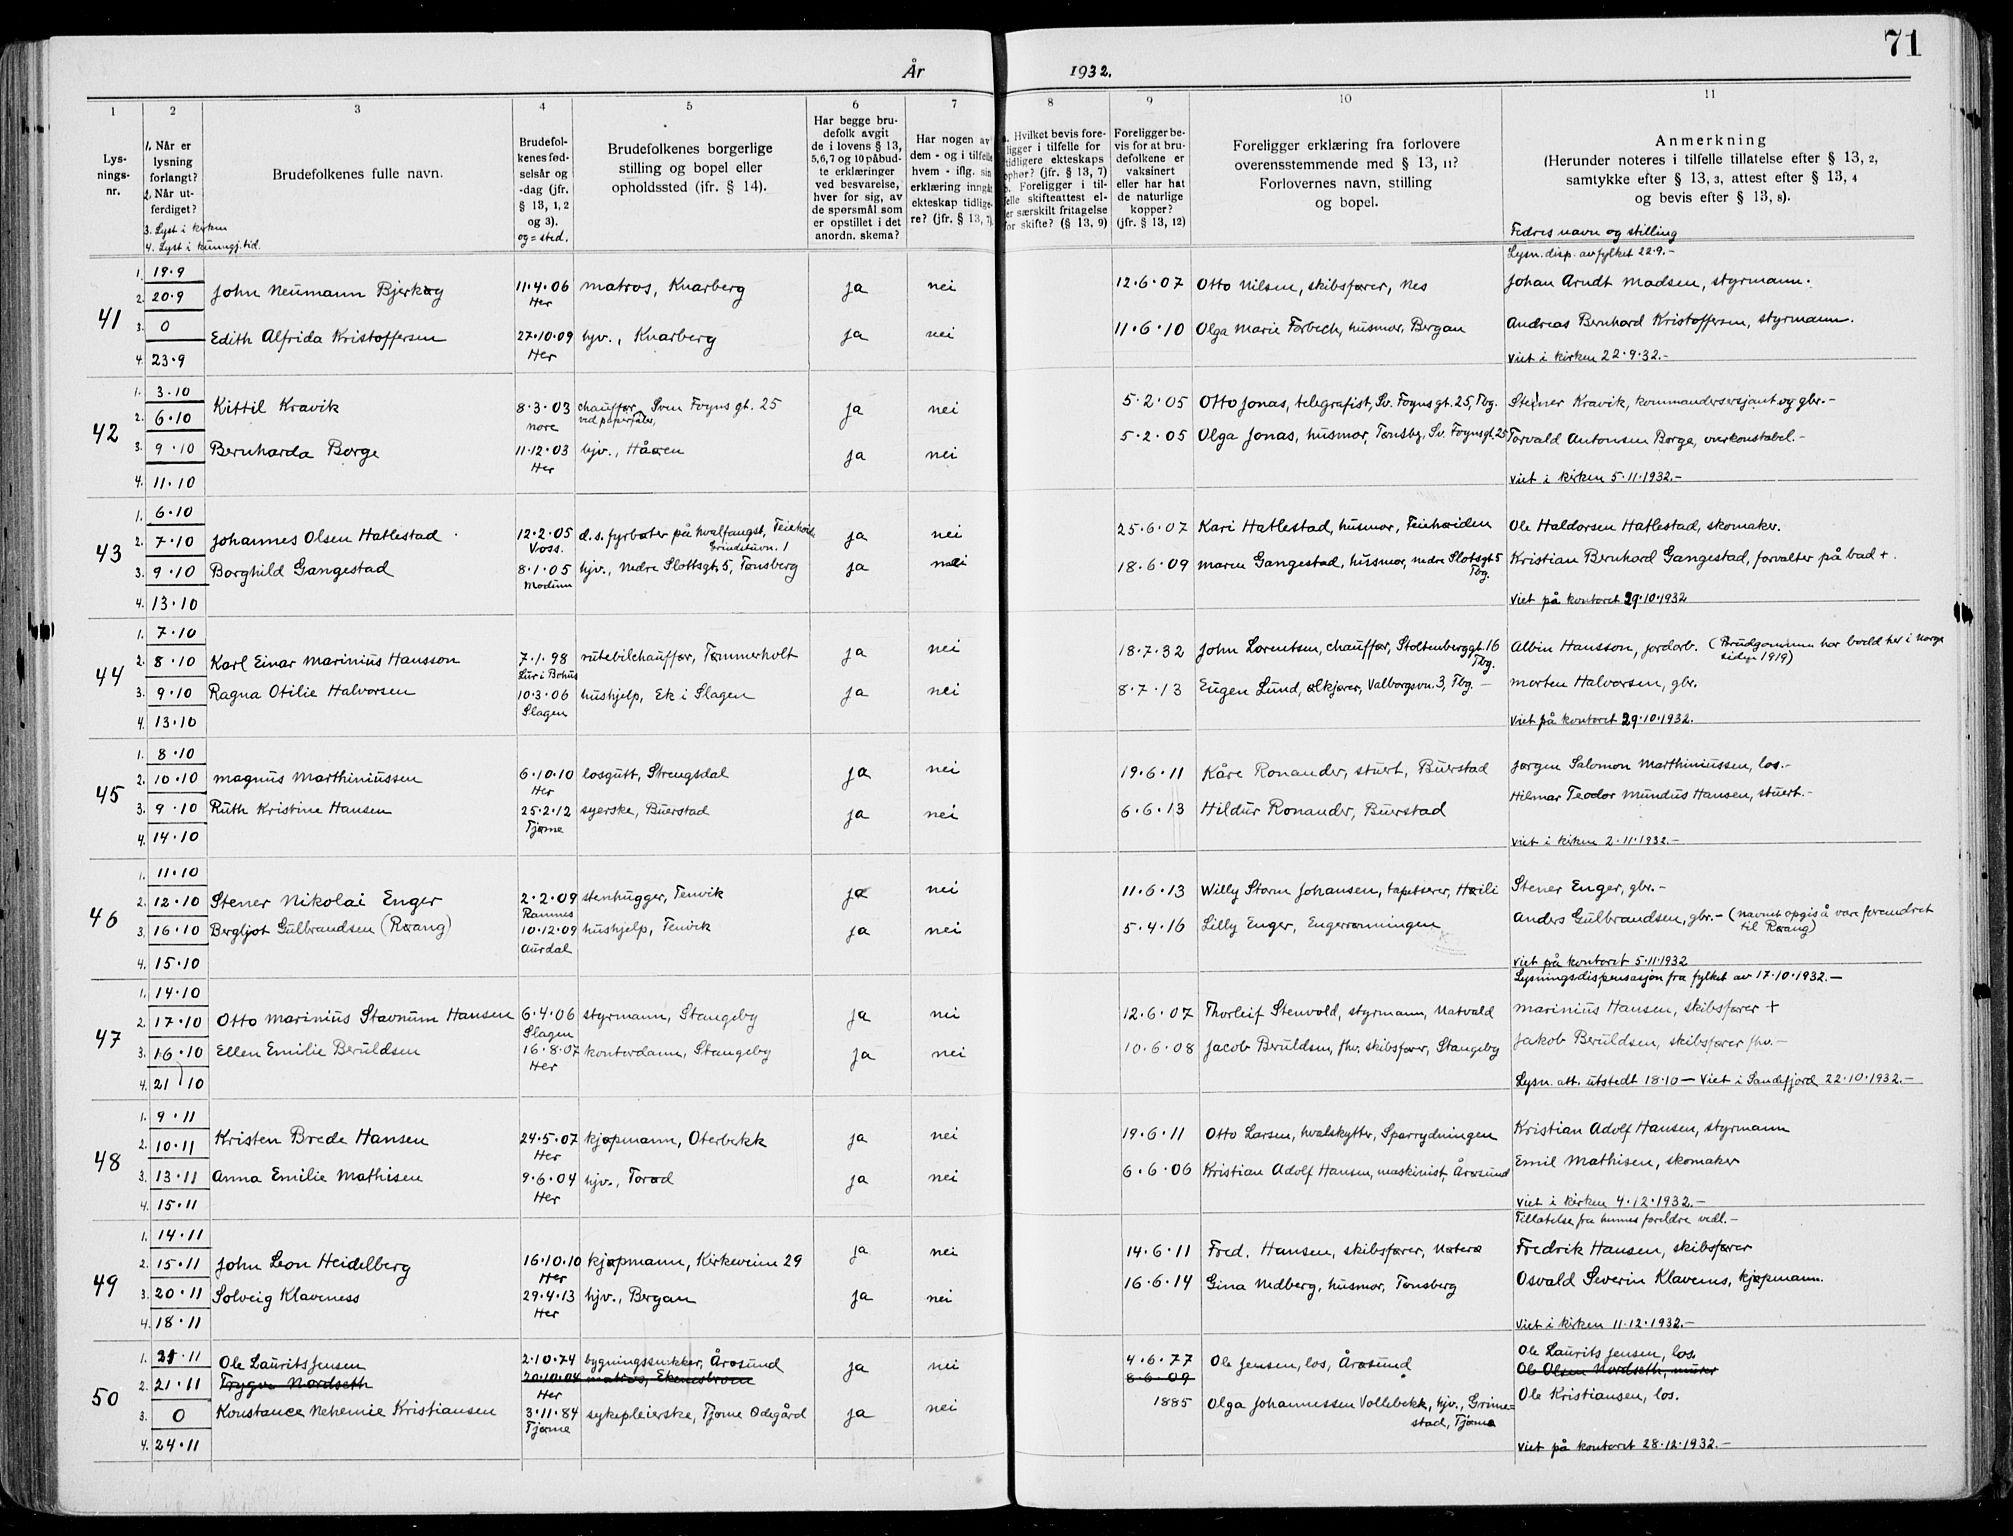 71
År 1932.
1 2 3 4 5 6 7 8 9 10 11
Lys-
nings-
nr.
1. Når er
lysning
forlangt?
2. Når ut-
ferdiget?
3. Lyst i kirken
4. Lyst i kunngj.tid.
Brudefolkenes fulle navn.
Brudefol-
kenes fød-
selsår og
-dag (jfr.
§ 13, 1, 2
og 3).
og = sted.
Brudefolkenes borgerlige
stilling og bopel eller
opholdssted (jfr. § 14).
Har begge bru-
defolk avgit
de i lovens § 13,
5,6,7 og 10 påbud-
te erklæringer
ved besvarelse,
hver for sig, av
de spørsmål som
er opstillet i det
anordn. skema?
Har nogen av
dem - og i tilfelle
hvem - iflg. sin
erklæring inngått
ekteskap tidlige-
re? (jfr. § 13, 7)
a. Hvilket bevis fore-
ligger i tilfelle for
tidligere ekteskaps
ophør? (jfr. § 13, 7)
b. Foreligger i til-
felle skifteattest el-
ler særskilt fritagelse
for skifte? (§ 13, 9)
Foreligger be-
vis for at bru-
defolkene er
vaksinert
eller har hat
de naturlige
kopper?
(jfr. § 13, 12)
Foreligger erklæring fra forlovere
overensstemmende med § 13, 11?
Forlovernes navn, stilling
og bopel.
Anmerkning
(Herunder noteres i tilfelle tillatelse efter § 13, 2,
samtykke efter § 13, 3, attest efter § 13, 4
og bevis efter § 13, 8).
Fedres navn og stilling
41
1. 19.9
2. 20.9
3. 0
4. 23.9
Lysn. disp. av fylket 22.9.-
John Neumann Bjerkøy 11.4.06 Her matros, Knarberg ja nei 12.6.07 Otto Nilsen, skibsfører, Nes Johan Arndt Madsen, styrmann.
Edith Alfrida Kristoffersen 27.10.09 Her hjv., Knarberg ja nei 11.6.10 Olga Marie Førbech, husmor, Bergan Andreas Bernhard Kristoffersen, styrmann.
Viet i kirken 22.9.32.-
42
1. 3.10
2. 6.10
3. 9.10
4. 11.10
Kittil Kravik 8.3.03 Nore chauffør, Sven Foyns gt. 25 ja nei 5.2.05 Otto Jonas, telegrafist, Sv. Foyns gt. 25, Tbg. Steiner Kravik, kommandersersjant og gbr.-
Bernharda Borge 11.12.03 Her hjv., Håøen ja nei 5.2.05 Olga Jonas, husmor, Tønsbg, Sv. Foynsgt. 25 Torvald Antonsen Borge, overkonstabel.-
Viet i kirken 5.11.1932.-
43
1. 6.10
2. 7.10
3. 9.10
4. 13.10
Johannes Olsen Hatlestad 12.2.05 Voss. d.s. fyrbøter på hvalfangst, Grindstuvn. 1 ja nei 25.6.07 Kari Hatlestad, husmor, Teiehøiden Ole Haldorsen Hatlestad, skomaker.
Borghild Gangestad 8.1.05 Modum hjv., Nedre Slottsgt. 5, Tønsberg ja nei 18.6.09 Maren Gangestad, husmor, nedre Slotsgt 5 Tbg. Kristian Bernhard Gangestad, forvalter på bad +.
Viet på kontoret 29.10.1932
44
1. 7.10
2. 8.10
3. 9.10
4. 13.10
Karl Einar Marinius Hansson 7.1.98 Lur i Bohus rutebilchauffør, Tømmerholt ja nei 18.7.32 John Lorentsen, chauffør, Stoltenberggt. 16 Tbg. Albin Hansson, jordarb. (Brudgommen har bodd her i Norge siden 1919)
Ragna Otilie Halvorsen 10.3.06 Slagen hushjelp, Ek i Slagen ja nei 8.7.13 Eugen Lund, ølkjører, Valborgsvn. 3, Tbg. - Morten Halvorsen, gbr.
Viet på kontoret 29.10.1932.
45
1. 8.10
2. 10.10
3. 9.10
4. 14.10
Magnus Marthiniussen 6.10.10 Her losgutt, Strengsdal ja nei 19.6.11 Kåre Ronander, stuert, Buerstad Jørgen Salomon Marthiniussen, los.-
Ruth Kristine Hansen 25.2.12 Tjøme syerske, Buerstad ja nei 6.6.13 Hildur Ronander, Buerstad Hilmar Teodor Mundus Hansen, stuert.-
Viet i kirken 2.11.1932.-
46
1. 11.10
2. 12.10
3. 16.10
4. 15.10
Stener Nikolai Enger 2.2.09 Ramnes stenhugger, Tenvik ja nei 11.6.13 Willy Storm Johansen, tapetserer, Høili Stener Enger, gbr.-
Bergljot Gulbrandsen (Røang) 10.12.09 Aurdal hushjelp, Tenvik ja nei 5.4.16 Lilly Enger, Engerrønningen Anders Gulbrandsen, gbr.- (navnet opgis å være forandret til Røang)
Viet på kontoret 5.11.1932
Lysningsdispensasjon fra fylket av 17.10.1932.-
47
1. 14.10
2. 17.10
3. 16.10
4. 21.10
Otto Marinius Stavnum Hansen 6.4.06 Slagen styrmann, Stangeby ja nei 12.6.07 Thorleif Stenvold, styrmann, Natvald Marinius Hansen, skibsfører +
Ellen Emilie Beruldsen 16.8.07 Her kontordame, Stangeby ja nei 10.6.08 Jacob Beruldsen, fhv. skibsfører, Stangeby Jakob Beruldsen, skibsfører fhv.-
Lysn. att. utstedt 18.10 - Viet i Sandefjord 22.10.1932.-
48
1. 9.11
2. 10.11
3. 13.11
4. 15.11
Kristen Brede Hansen 24.5.07 Her kjøpmann, Oterbekk ja nei 19.6.11 Otto Larsen, hvalskytter, Sperrydningen Kristian Adolf Hansen, styrmann
Anna Emilie Mathisen 9.6.04 Her hjv., Torød ja nei 6.6.06 Kristian Adolf Hansen, maskinist, Årøsund Emil Mathisen, skomaker
Viet i kirken 4.12.1932.-
49
1. 14.11
2. 15.11
3. 20.11
4. 18.11
Tillatelse fra hennes foreldre vedl.-
John Leon Heidelberg 16.10.10 Her kjøpmann, Kirkeveien 29 ja nei 14.6.11 Fred. Hansen, skibsfører, Nøterø Fredrik Hansen, skibsfører
Solveig Klaveness 29.4.13 Her hjv., Bergan ja nei 16.6.14 Gina Nedberg, husmor, Tønsberg Osvald Severin Klaveness, kjøpmann.
Viet i kirken 11.12.1932.-
50
1. 21.11
2. 21.11
3. 0
4. 24.11
Ole Laurits Jensen 2.10.74 bygningssnikker, Årøsund ja nei 4.6.77 Ole Jensen, los, Årøsund Ole Laurits Jensen, los.
Trygve Nordseth 20.10.04 Her matros, Ekenesbroen 8.6.09 Ole Olsen Nordseth, murer
Konstance Nehemie Kristiansen 3.11.84 Tjøme sykepleierske, Tjøme Ødegård ja nei 1885 Olga Johannessen Vollebekk, hjv., Grime=stad, Tjøme Ole Kristiansen, los.
Viet på kontoret 28.12.1932.-